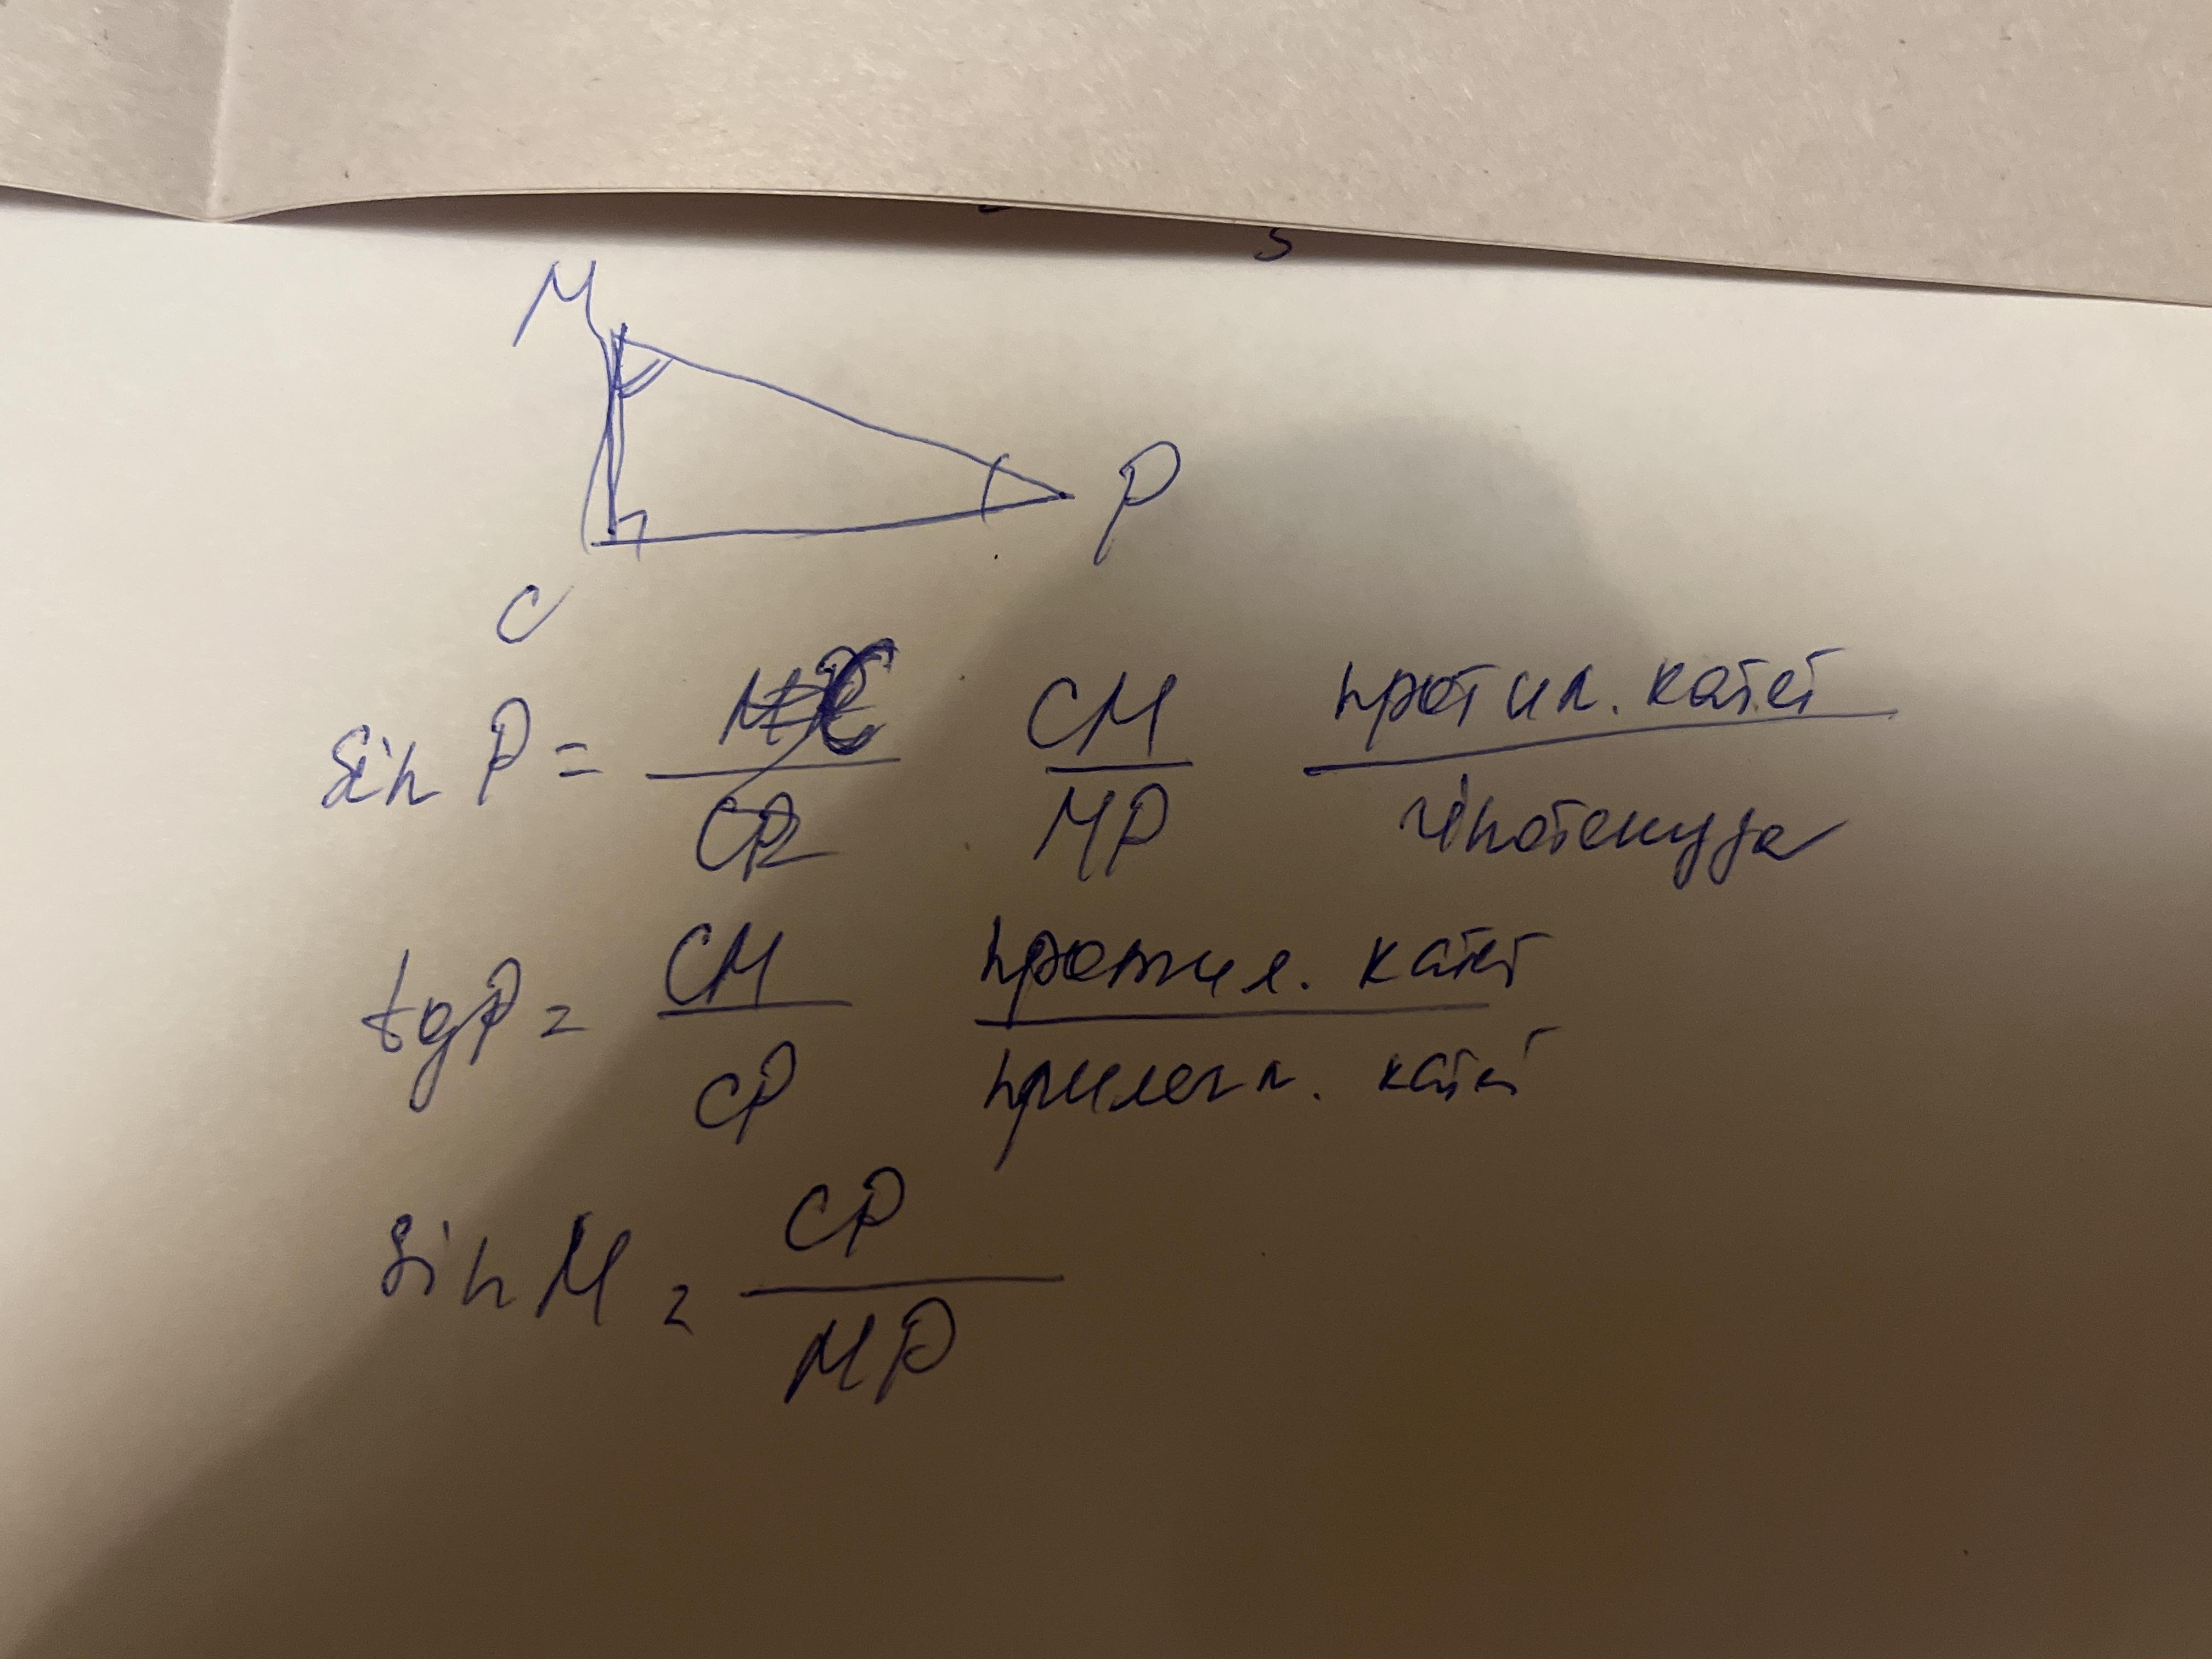 M
P
C
sin P = CM/MP против. катет/гипотенуза
tg P = CM/CP против. катет/прилегл. катет
sin M = CP/MP